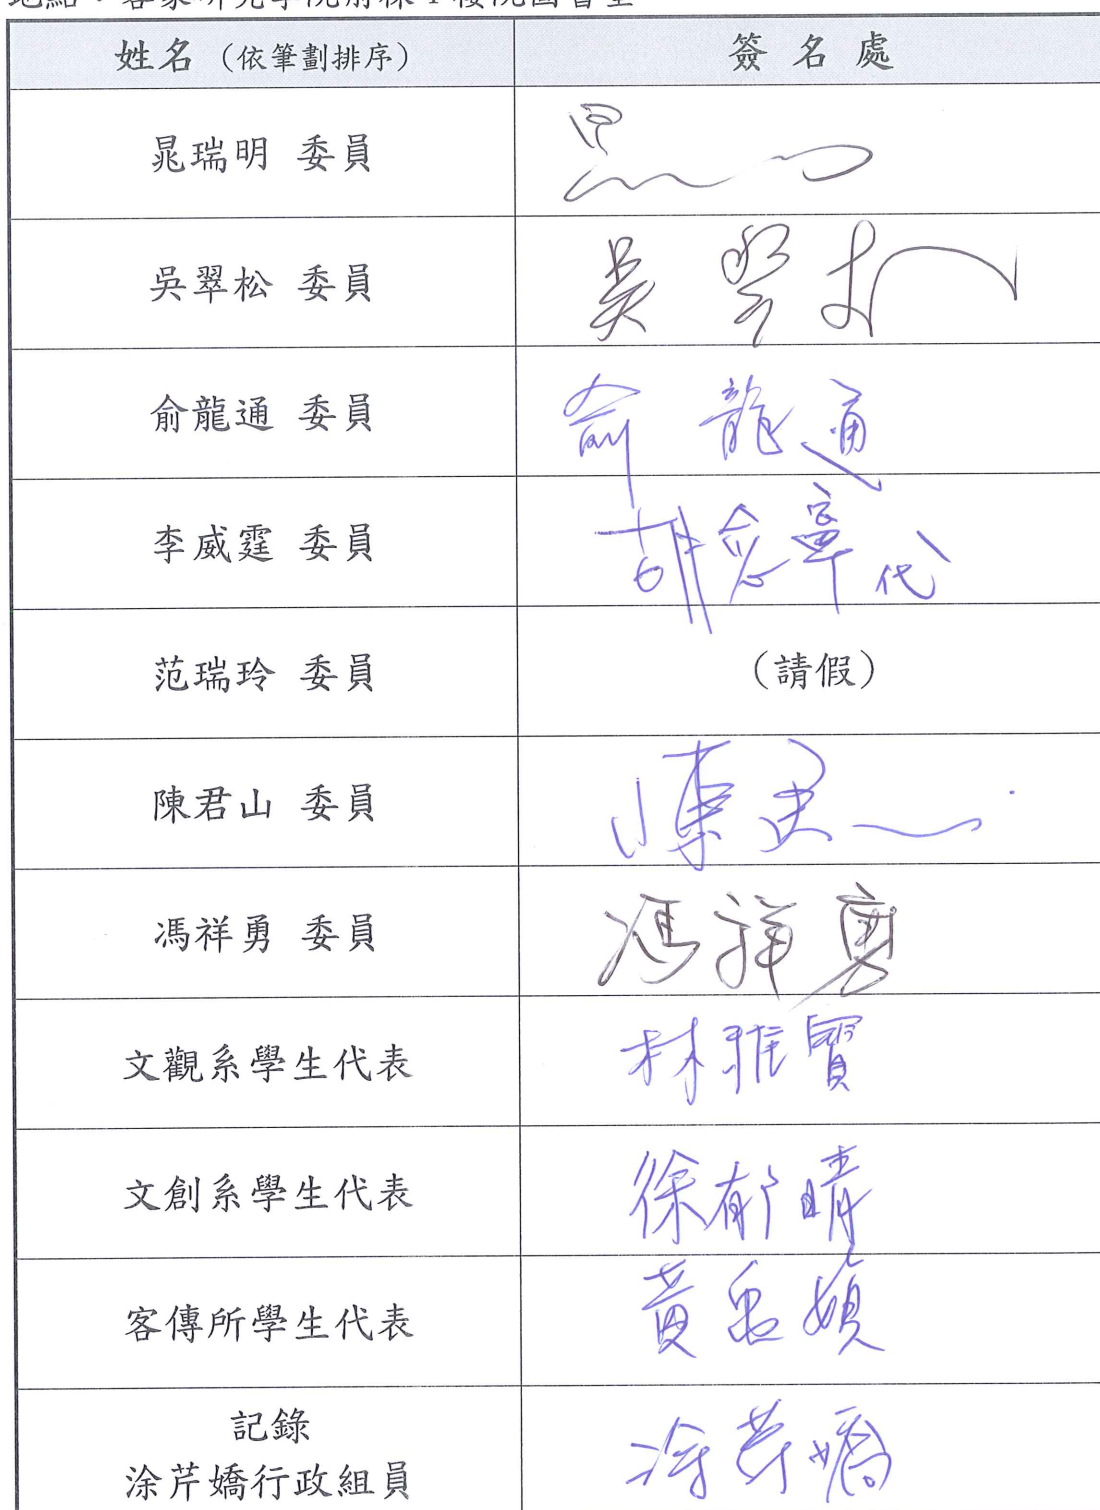 姓名（依筆劃排序） 簽名處
晁瑞明 委員
吳翠松 委員 吳翠松
俞龍通 委員 俞龍通
李威霆 委員 胡愈寧代
范瑞玲 委員 （請假）
陳君山 委員 陳君山
馮祥勇 委員 馮祥勇
文觀系學生代表 林雅賢
文創系學生代表 徐郁晴
客傳所學生代表 黃
記錄
涂芹嬌行政組員 涂芹嬌